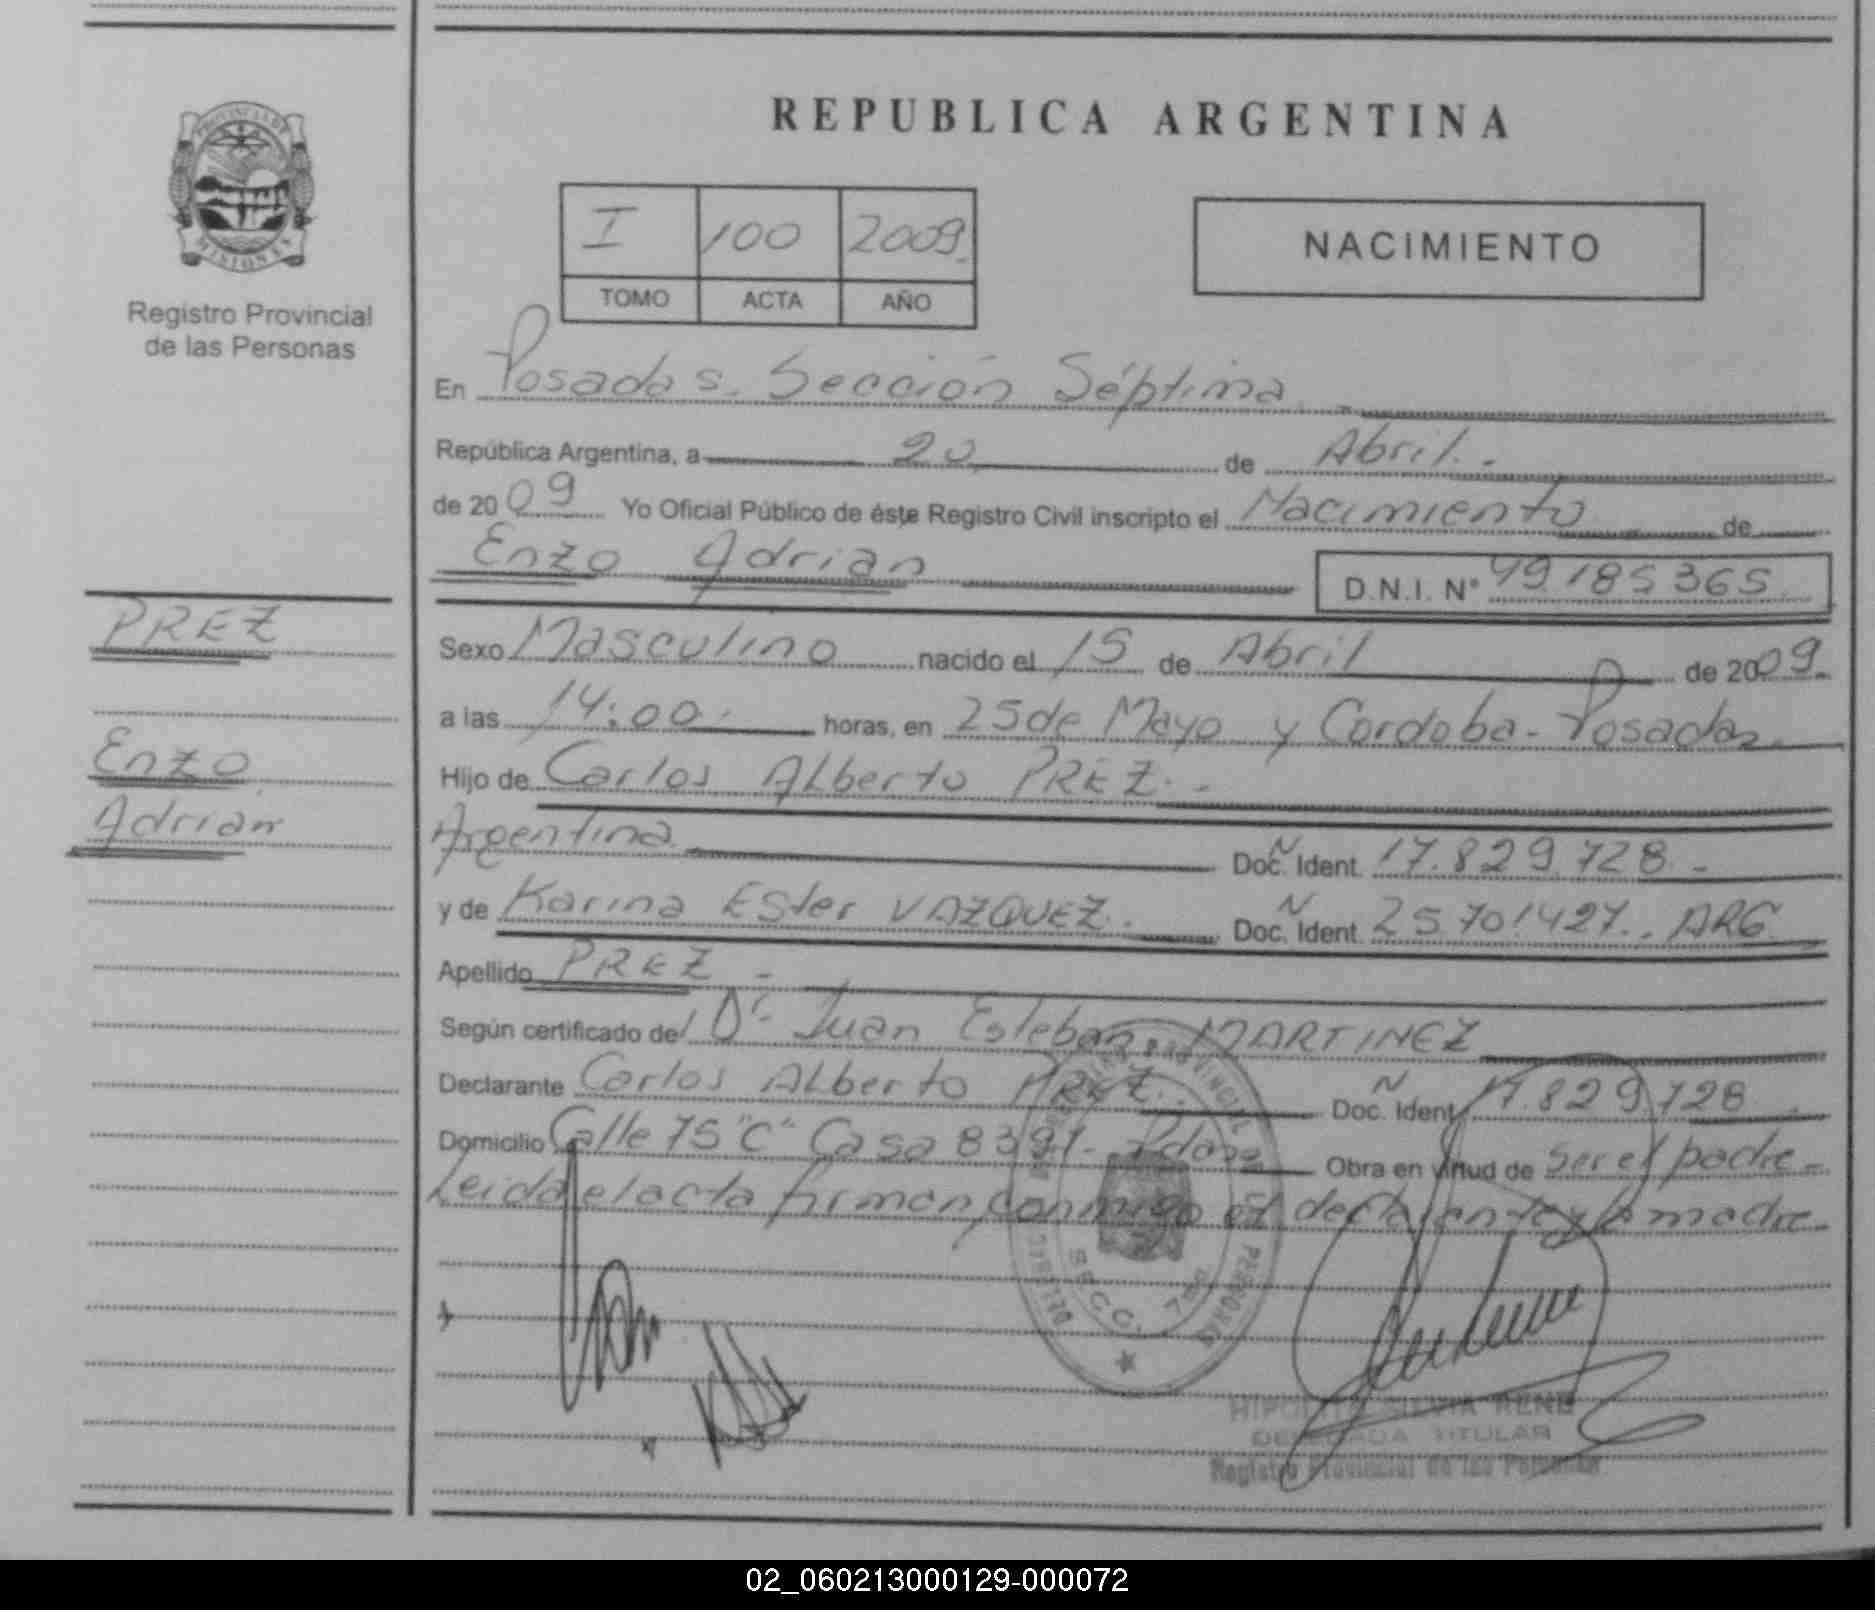 REPUBLICA ARGENTINA
PROVINCIA DE
MISIONES
Registro Provincial
de las Personas
I 100 2009
TOMO ACTA AÑO
NACIMIENTO
En Posadas. Sección Séptima
República Argentina, a 20 de Abril.
de 2009 Yo Oficial Público de éste Registro Civil inscripto el Nacimiento de
Enzo Adrian D.N.I. Nº 49.185365
PREZ
Enzo
Adrian
Sexo Masculino nacido el 15 de Abril de 2009.
a las 14:00. horas, en 25 de Mayo y Cordoba - Posadas.
Hijo de Carlos Alberto PREZ. -
Argentina. Doc. Ident. N 17.829.728. -
y de Karina Ester VAZQUEZ. Doc. Ident. N 25.701427. ARG.
Apellido PREZ -
Según certificado del Dr. Juan Esteban MARTINEZ
Declarante Carlos Alberto PREZ. Doc. Ident. N 17.829.728
Domicilio Calle 75 "C" Casa 8391 - Pdas Obra en virtud de ser el padre -
Leida el acta firman conmigo el declarante y la madre.
SECC. 7ma
SILVIA RENE
DELEGADA TITULAR
Registro Provincial de las Personas
02_060213000129-000072